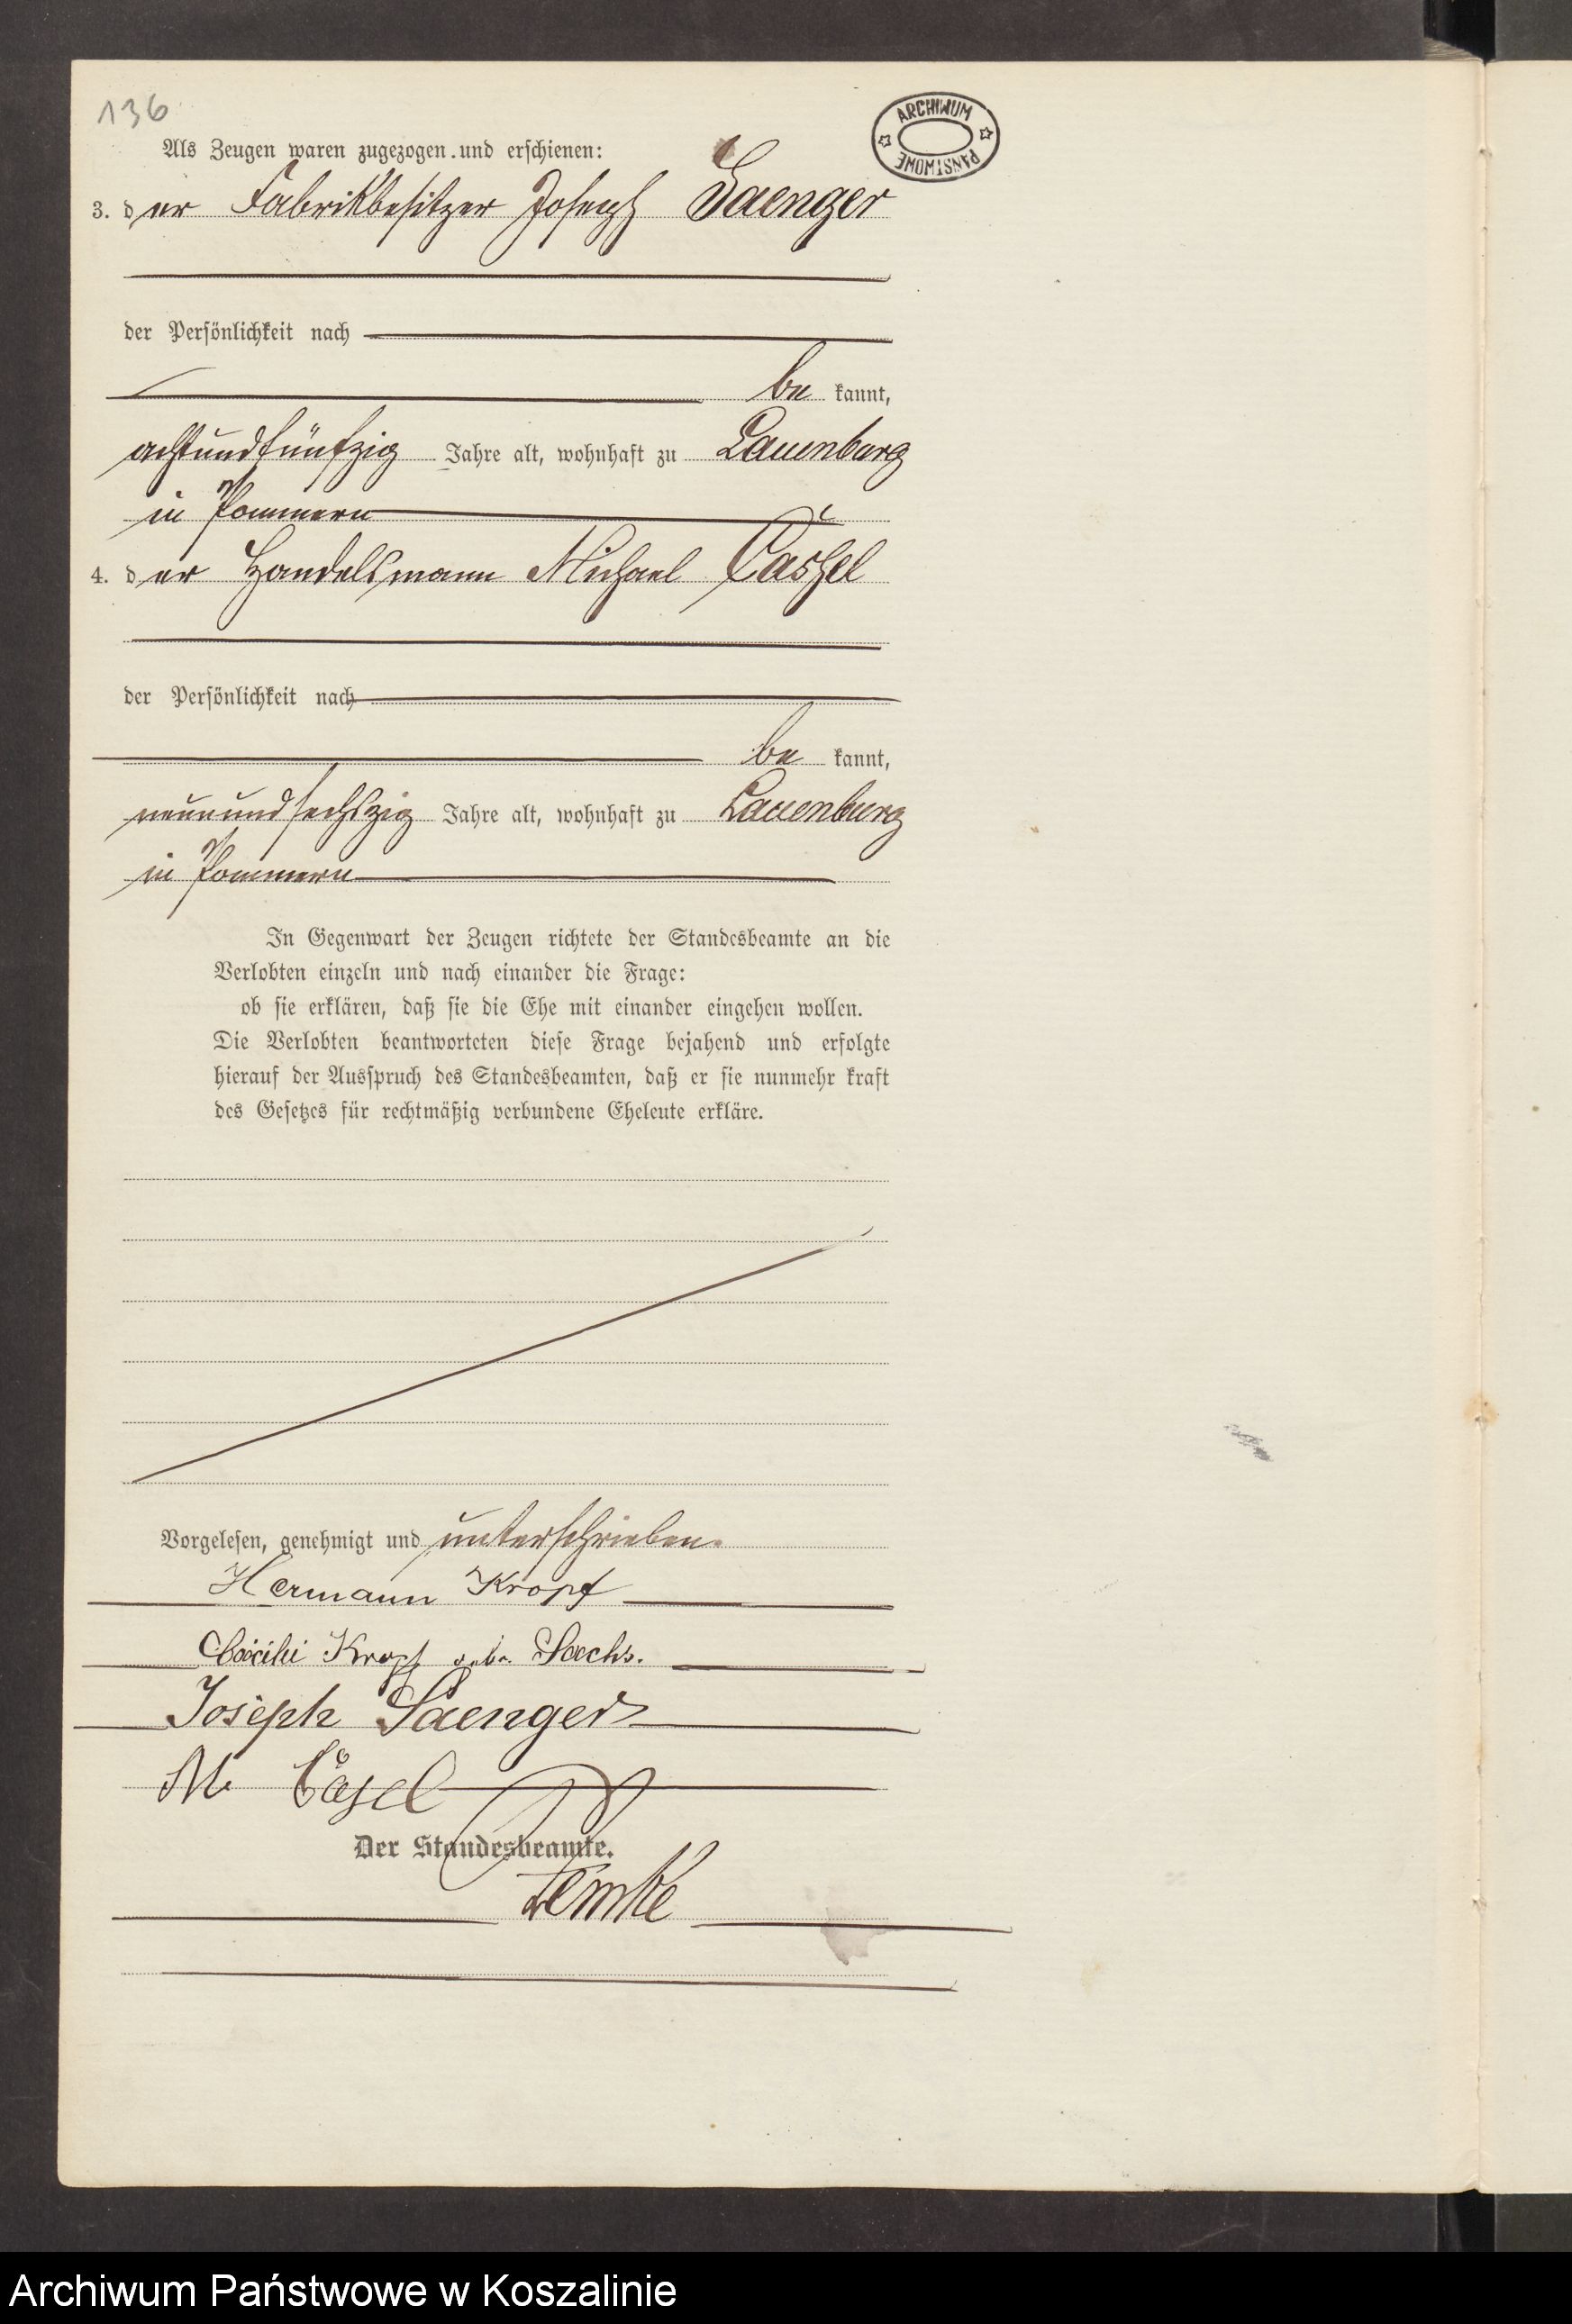 136
ARCHIWUM
PAŃSTWOWE
Als Zeugen waren zugezogen und erschienen:
3. der Fabrikbesitzer Joseph Saenger
der Persönlichkeit nach
bekannt,
achtundfünfzig Jahre alt, wohnhaft zu Lauenburg
in Pommern
4. der Handelsmann Michael Casßel
der Persönlichkeit nach
bekannt,
neunundsechszig Jahre alt, wohnhaft zu Lauenburg
in Pommern
In Gegenwart der Zeugen richtete der Standesbeamte an die
Verlobten einzeln und nach einander die Frage:
ob sie erklären, daß sie die Ehe mit einander eingehen wollen.
Die Verlobten beantworteten diese Frage bejahend und erfolgte
hierauf der Ausspruch des Standesbeamten, daß er sie nunmehr kraft
des Gesetzes für rechtmäßig verbundene Eheleute erkläre.
Vorgelesen, genehmigt und unterschrieben.
Hermann Kropf
Kropf geb. Sachs.
Joseph Saenger
M. Casel
Der Standesbeamte.
Lemke
Archiwum Państwowe w Koszalinie